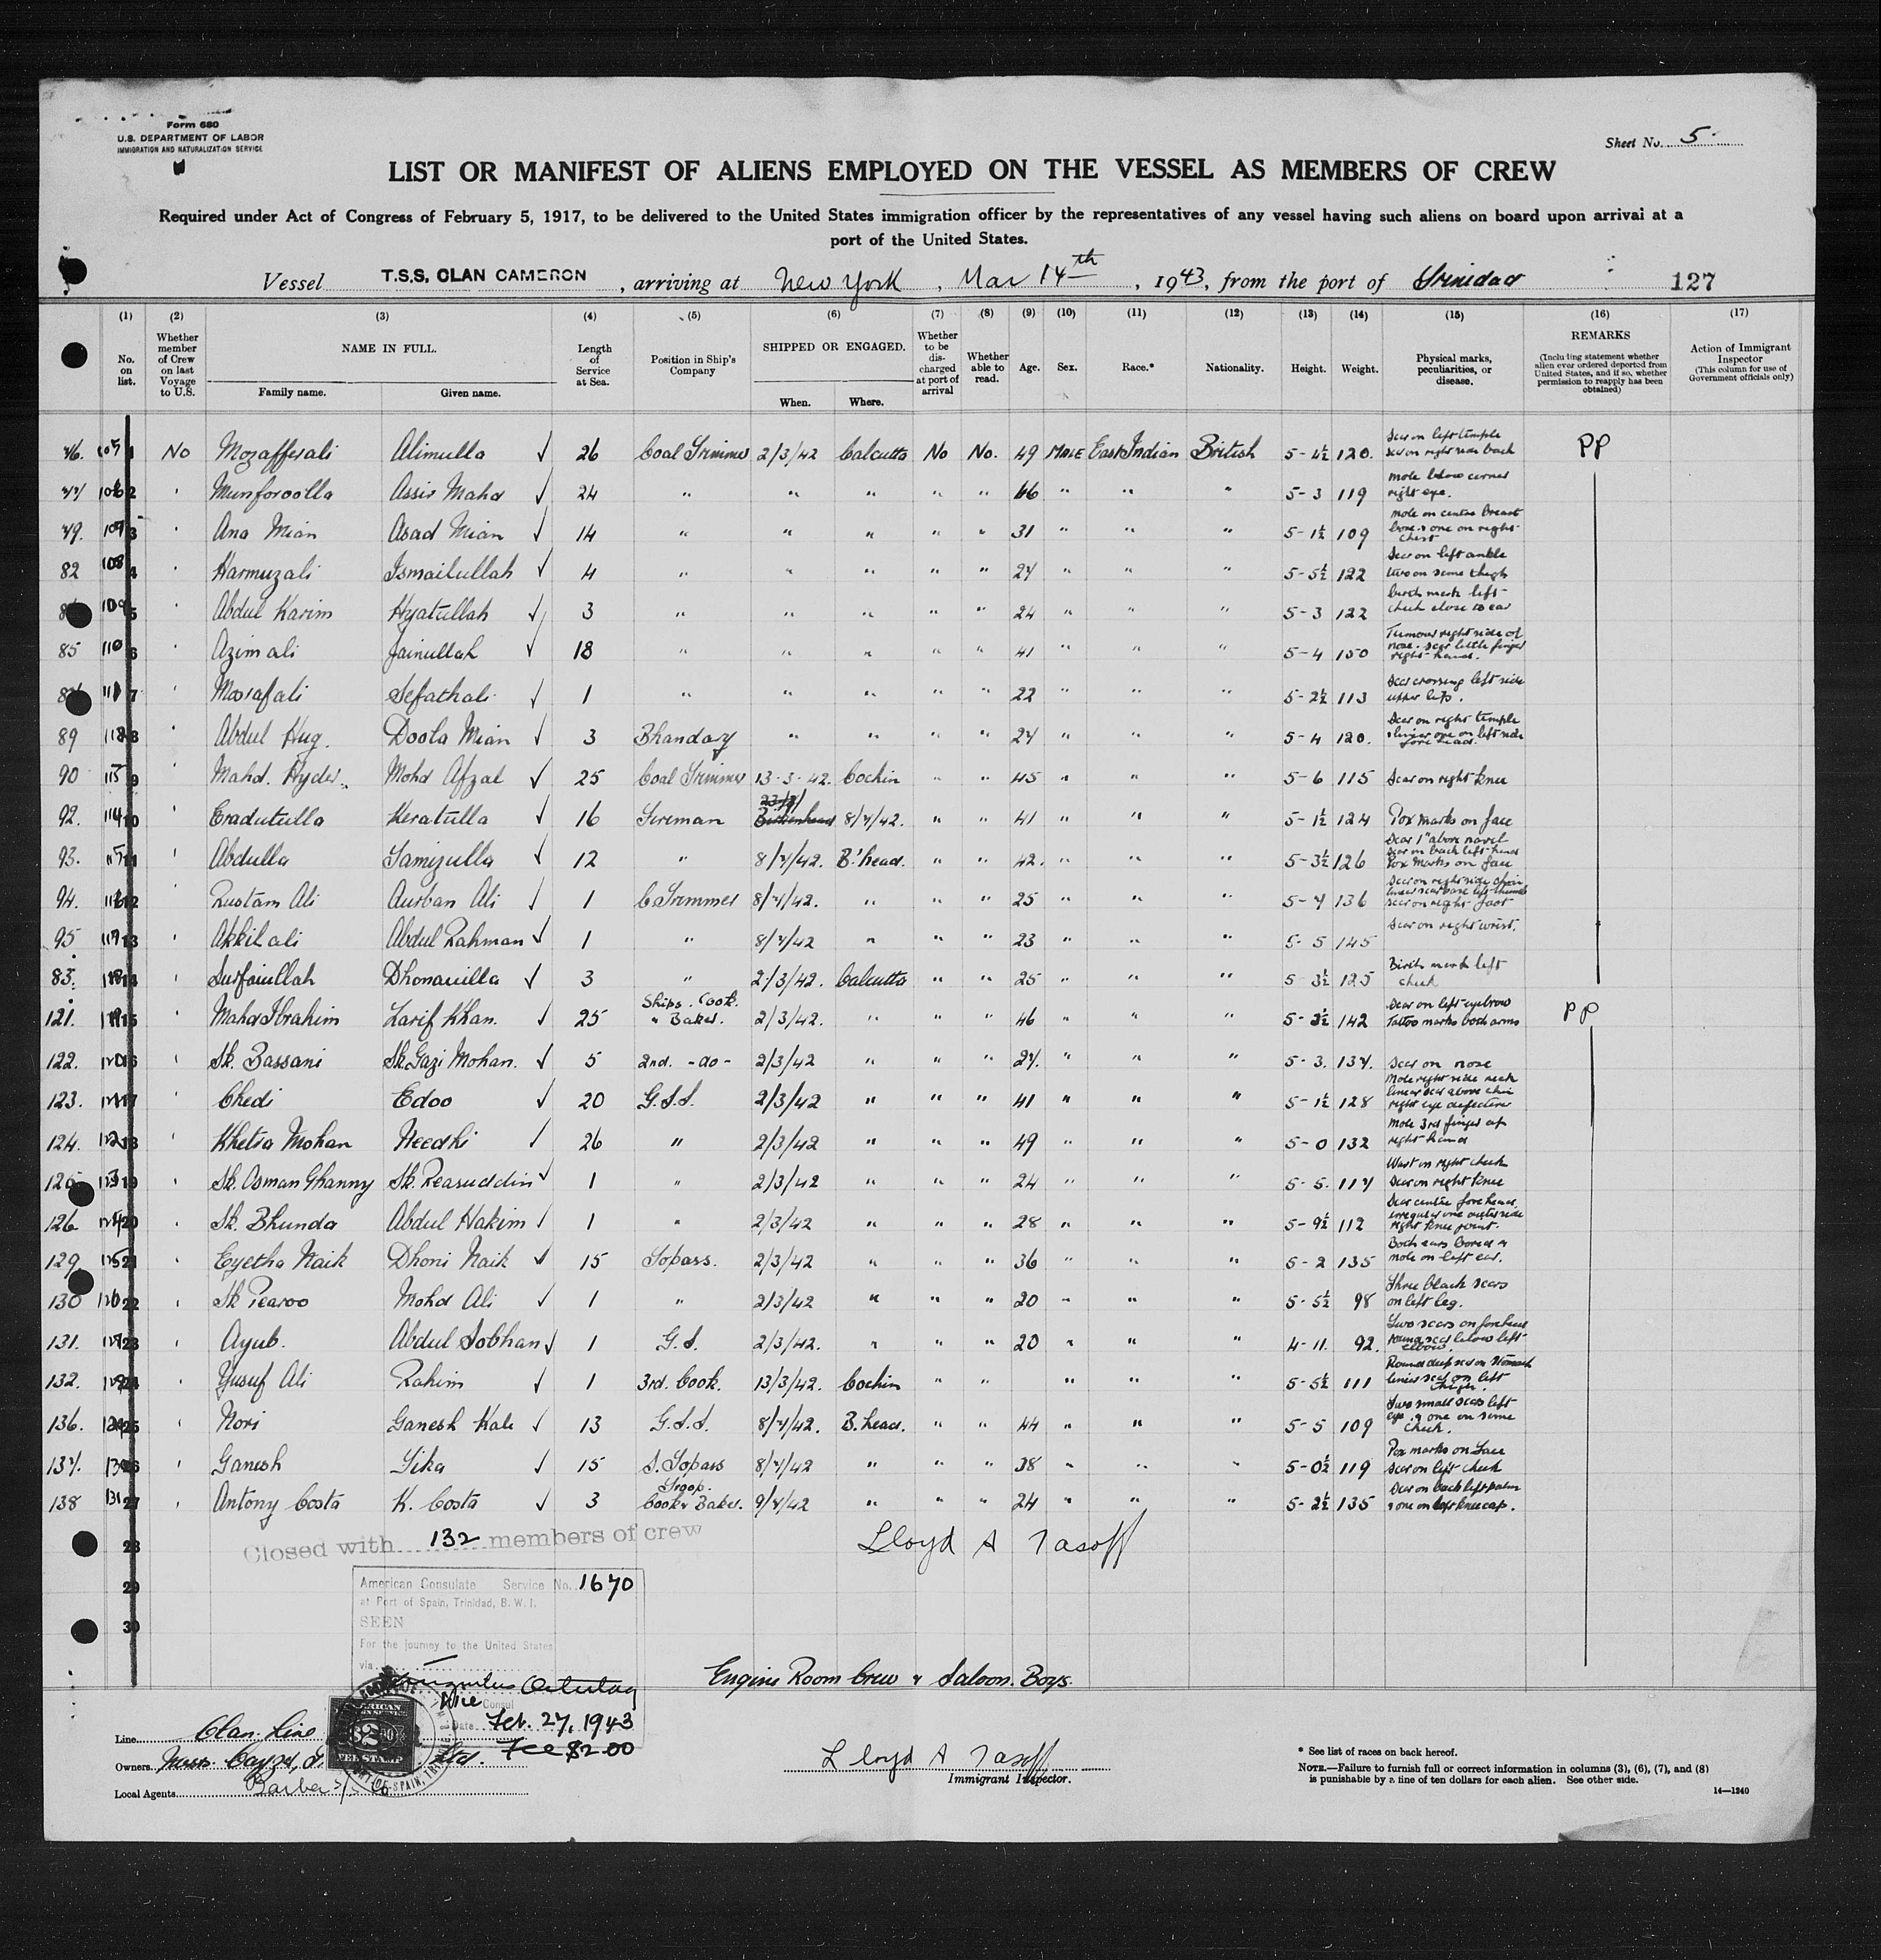 Form 680
U.S. DEPARTMENT OF LABOR
IMMIGRATION AND NATURALIZATION SERVICE
Sheet No. 5.
LIST OR MANIFEST OF ALIENS EMPLOYED ON THE VESSEL AS MEMBERS OF CREW
Required under Act of Congress of February 5, 1917, to be delivered to the United States immigration officer by the representatives of any vessel having such aliens on board upon arrival at a
port of the United States.
Vessel T.S.S. CLAN CAMERON, arriving at New York, Mar 14th, 1943, from the port of Trinidad 127
(1) (2) (3) (4) (5) (6) (7) (8) (9) (10) (11) (12) (13) (14) (15) (16) (17)
No. on list. Whether member of Crew on last Voyage to U.S. NAME IN FULL. Family name. Given name. Length of Service at Sea. Position in Ship's Company SHIPPED OR ENGAGED. When. Where. Whether to be discharged at port of arrival Whether able to read. Age. Sex. Race.* Nationality. Height. Weight. Physical marks, peculiarities, or disease. REMARKS (Including statement whether alien ever ordered deported from United States, and if so, whether permission to reapply has been obtained) Action of Immigrant Inspector (This column for use of Government officials only)
105 1 No Mozafferali Alimulla ✓ 26 Coal Trimmer 2/3/42 Calcutta No No. 49 MALE East Indian British 5-4½ 120. Scar on left temple scar on right side back PP
106 2 " Munforoolla Assir Mahd ✓ 24 " " " " " 46 " " " 5-3 119 mole below corner right eye.
49. 107 3 " Ana Mian Asad Mian ✓ 14 " " " " " 31 " " " 5-1½ 109 mole on centre breast bone & one on right chest
82 108 4 " Harmuzali Ismailullah ✓ 4 " " " " " 27 " " " 5-5½ 122 Scar on left ankle two on same thigh
109 5 " Abdul Karim Hyatullah ✓ 3 " " " " " 24 " " " 5-3 122 birth mark left cheek close to ear
85 110 6 " Azimali Jainullah ✓ 18 " " " " " 41 " " " 5-4 150 Tumour right side of nose. scar little finger right hand.
111 7 " Mosrafali Sefathali ✓ 1 " " " " " 22 " " " 5-2½ 113 Scar crossing left side upper lip.
89 112 8 " Abdul Huq. Doola Mian ✓ 3 Bhandary " " " " 27 " " " 5-4 120. Scar on right temple & linear one on left side forehead.
90 9 " Mahd. Hyder. Mohd Afzal ✓ 25 Coal Trimmer 13-3-42. Cochin " " 45 " " " 5-6 115 Scar on right knee
92. 114 10 " Eradutulla Keratulla ✓ 16 Fireman Birkenhead 8/7/42. " " 41 " " " 5-1½ 124 Pox marks on face
93. 11 " Abdulla Tamizulla ✓ 12 " 8/7/42. B'head. " " 42. " " " 5-3½ 126 Scar 1" above navel Scar on back left hand Pox marks on face
94. 12 " Rustam Ali Aurban Ali ✓ 1 C Trimmer 8/7/42. " " " 25 " " " 5-7 136 scar on right foot
95 13 " Akkilali Abdul Rahman ✓ 1 " 8/7/42 " " " 23 " " " 5-5 145 Scar on right wrist.
83. 14 " Surfaiullah Dhonauilla ✓ 3 " 2/3/42. Calcutta " " 25 " " " 5-3½ 125 Birth mark left cheek
121. 15 " Mahd Ibrahim Zarif Khan. ✓ 25 Ships. Cook. " Baker. 2/3/42. " " " 46 " " " 142 Scar on left eyebrow Tattoo marks both arms PP
122. 16 " Sk. Bassani Sk. Gazi Mohan. ✓ 5 2nd. -do- 2/3/42 " " " 27. " " " 5-3. 137. Scar on nose
123. 17 " Chedi Edoo ✓ 20 G.S.S. 2/3/42 " " " 41 " " " 5-1½ 128 Mole right side neck linear scar above chin right eye defective
124. 18 " Khetra Mohan Needhi ✓ 26 " 2/3/42 " " " 49 " " " 5-0 132 Mole 3rd finger of right hand
125 19 " Sk. Osman Ghanny Sk. Reasuddin ✓ 1 " 2/3/42 " " " 24 " " " 5-5. 117 Wart on right cheek Scar on right knee
126. 20 " Sk. Bhunda Abdul Hakim ✓ 1 " 2/3/42 " " " 28 " " " 5-9½ 112 Scar centre forehead. irregular one outer side right knee joint.
129 21 " Eyetha Naik Dhoni Naik ✓ 15 Topass. 2/3/42 " " " 36 " " " 5-2 135 Both ears bored & mole on left ear.
130 22 " Sk Pearoo Mohd Ali ✓ 1 " 2/3/42 " " " 20 " " " 5-5½ 98 Three black scars on left leg.
131. 23 " Ayub. Abdul Sobhan ✓ 1 G.S. 2/3/42. " " " 20 " " " 4-11. 92. Two scars on forehead round scar below left elbow.
132. 24 " Yusuf Ali Rahim ✓ 1 3rd. Cook. 13/3/42. Cochin " " " " " 5-5½ 111 Round deep scar on stomach linear scar on left thigh.
136. 25 " Nori Ganesh Kali ✓ 13 G.S.S. 8/7/42. B.head. " " 44 " " " 5-5 109 Two small scars left eye & one on same cheek.
137. 26 " Ganesh Tika ✓ 15 S. Topass 8/7/42 " " " 38 " " " 5-0½ 119 Pox marks on face scar on left cheek
138 131 27 " Antony Costa K. Costa ✓ 3 Troop. Cook & Baker. 9/7/42 " " " 24 " " " 5-2½ 135 Scar on back left palm & one on left kneecap.
28 Closed with 132 members of crew Lloyd A Tasoff
29
30
American Consulate Service No. 1670
at Port of Spain, Trinidad, B. W. I.
SEEN
For the journey to the United States
via
Vice Consul
Date Feb. 27, 1943
Fee $2.00
Engine Room Crew & Saloon Boys.
Line Clan Line
Owners Messrs Cayzer, Ltd.
Local Agents Barber S/S Co
Lloyd A Tasoff
Immigrant Inspector.
* See list of races on back hereof.
NOTE.—Failure to furnish full or correct information in columns (3), (6), (7), and (8)
is punishable by a fine of ten dollars for each alien. See other side.
14—1240